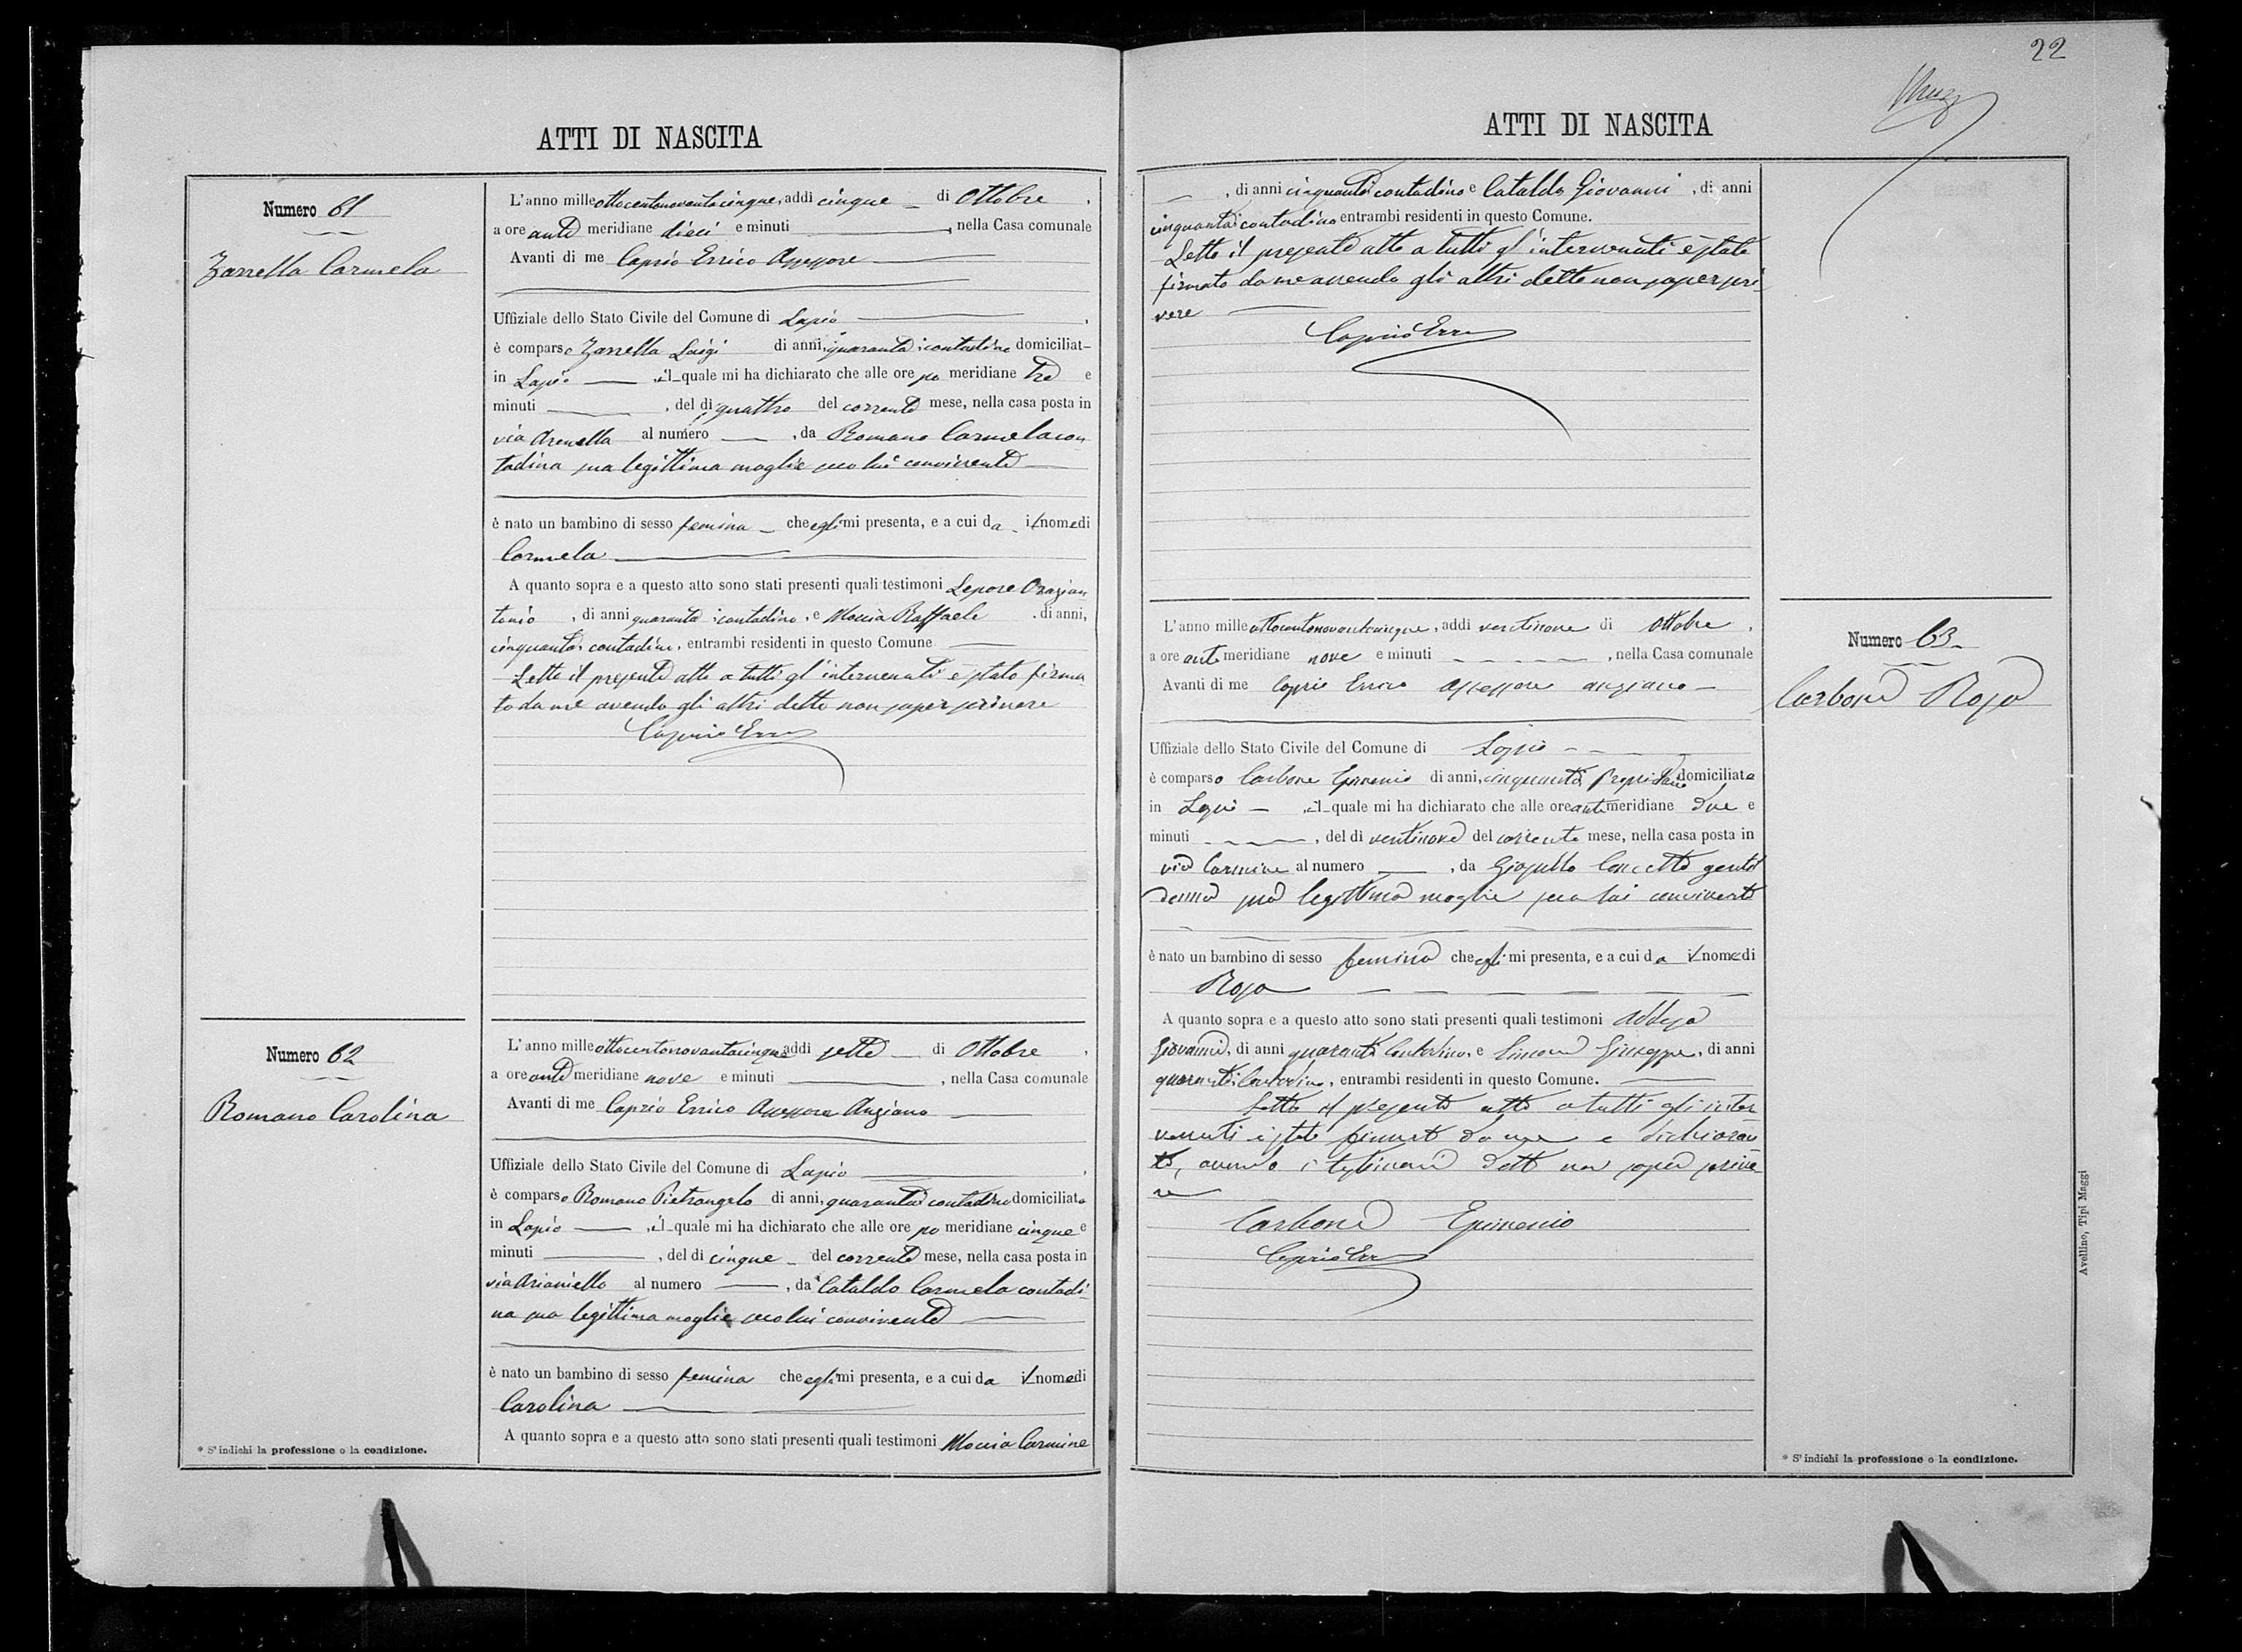 22
ATTI DI NASCITA
Numero 61
Zarrella Carmela
L'anno mille ottocentonovantacinque, addi cinque di Ottobre,
a ore ante meridiane dieci e minuti , nella Casa comunale
Avanti di me Caprio Errico Assessore
Uffiziale dello Stato Civile del Comune di Lapio,
è comparso Zarrella Luigi di anni, quaranta, contadino domiciliat-
in Lapio , il quale mi ha dichiarato che alle ore po meridiane tre e
minuti , del dì quattro del corrente mese, nella casa posta in
via Arenella al numero , da Romano Carmela con
tadina sua legittima moglie seco lui convivente
è nato un bambino di sesso femina che egli mi presenta, e a cui da il nome di
Carmela
A quanto sopra e a questo atto sono stati presenti quali testimoni Lepore Orazian
tonio , di anni quaranta, contadino, e Moccia Raffaele , di anni,
cinquanta, contadino, entrambi residenti in questo Comune
Letto il presente atto a tutti gl'intervenuti è stato firma
to da me avendo gli altri detto non saper scrivere
Caprio Err
Numero 62
Romano Carolina
L'anno mille ottocentonovantacinque addi sette di Ottobre,
a ore ante meridiane nove e minuti , nella Casa comunale
Avanti di me Caprio Errico Assessore Anziano
Uffiziale dello Stato Civile del Comune di Lapio,
è comparso Romano Pietrangelo di anni, quaranta contadino domiciliato
in Lapio , il quale mi ha dichiarato che alle ore po meridiane cinque e
minuti , del dì cinque del corrente mese, nella casa posta in
via Arianiello al numero , da Cataldo Carmela contadi
na sua legittima moglie seco lui convivente
è nato un bambino di sesso femina che egli mi presenta, e a cui da il nome di
Carolina
A quanto sopra e a questo atto sono stati presenti quali testimoni Moccia Carmine
* S'indichi la professione o la condizione.
ATTI DI NASCITA
, di anni cinquanta contadino e Cataldo Giovanni , di anni
cinquanta contadino entrambi residenti in questo Comune.
Letto il presente atto a tutti gl'intervenuti è stato
firmato da me avendo gli altri detto non saper scri
vere
Caprio Err
Numero 63
Carbone Rosa
L'anno mille ottocentonovantacinque, addi ventinove di Ottobre,
a ore ante meridiane nove e minuti , nella Casa comunale
Avanti di me Caprio Errico Assessore anziano
Uffiziale dello Stato Civile del Comune di Lapio
è comparso Carbone Epimenio di anni, cinquanta Proprietario domiciliato
in Lapio , il quale mi ha dichiarato che alle ore ante meridiane due e
minuti , del dì ventinove del corrente mese, nella casa posta in
via Carmine al numero , da Concetta gentil
donna sua legittima moglie seco lui convivente
è nato un bambino di sesso femina che egli mi presenta, e a cui da il nome di
Rosa
A quanto sopra e a questo atto sono stati presenti quali testimoni
Giovanni, di anni quaranta Contadino, e Giuseppe, di anni
quaranta, Contadino, entrambi residenti in questo Comune.
Letto il presente atto a tutti gli inter
venuti è stato firmato da me e dichioran
te, avendo i testimoni detto non saper scrive
re
Carbone Epimenio
Caprio Err
* S'indichi la professione o la condizione.
Avellino, Tipi Maggi